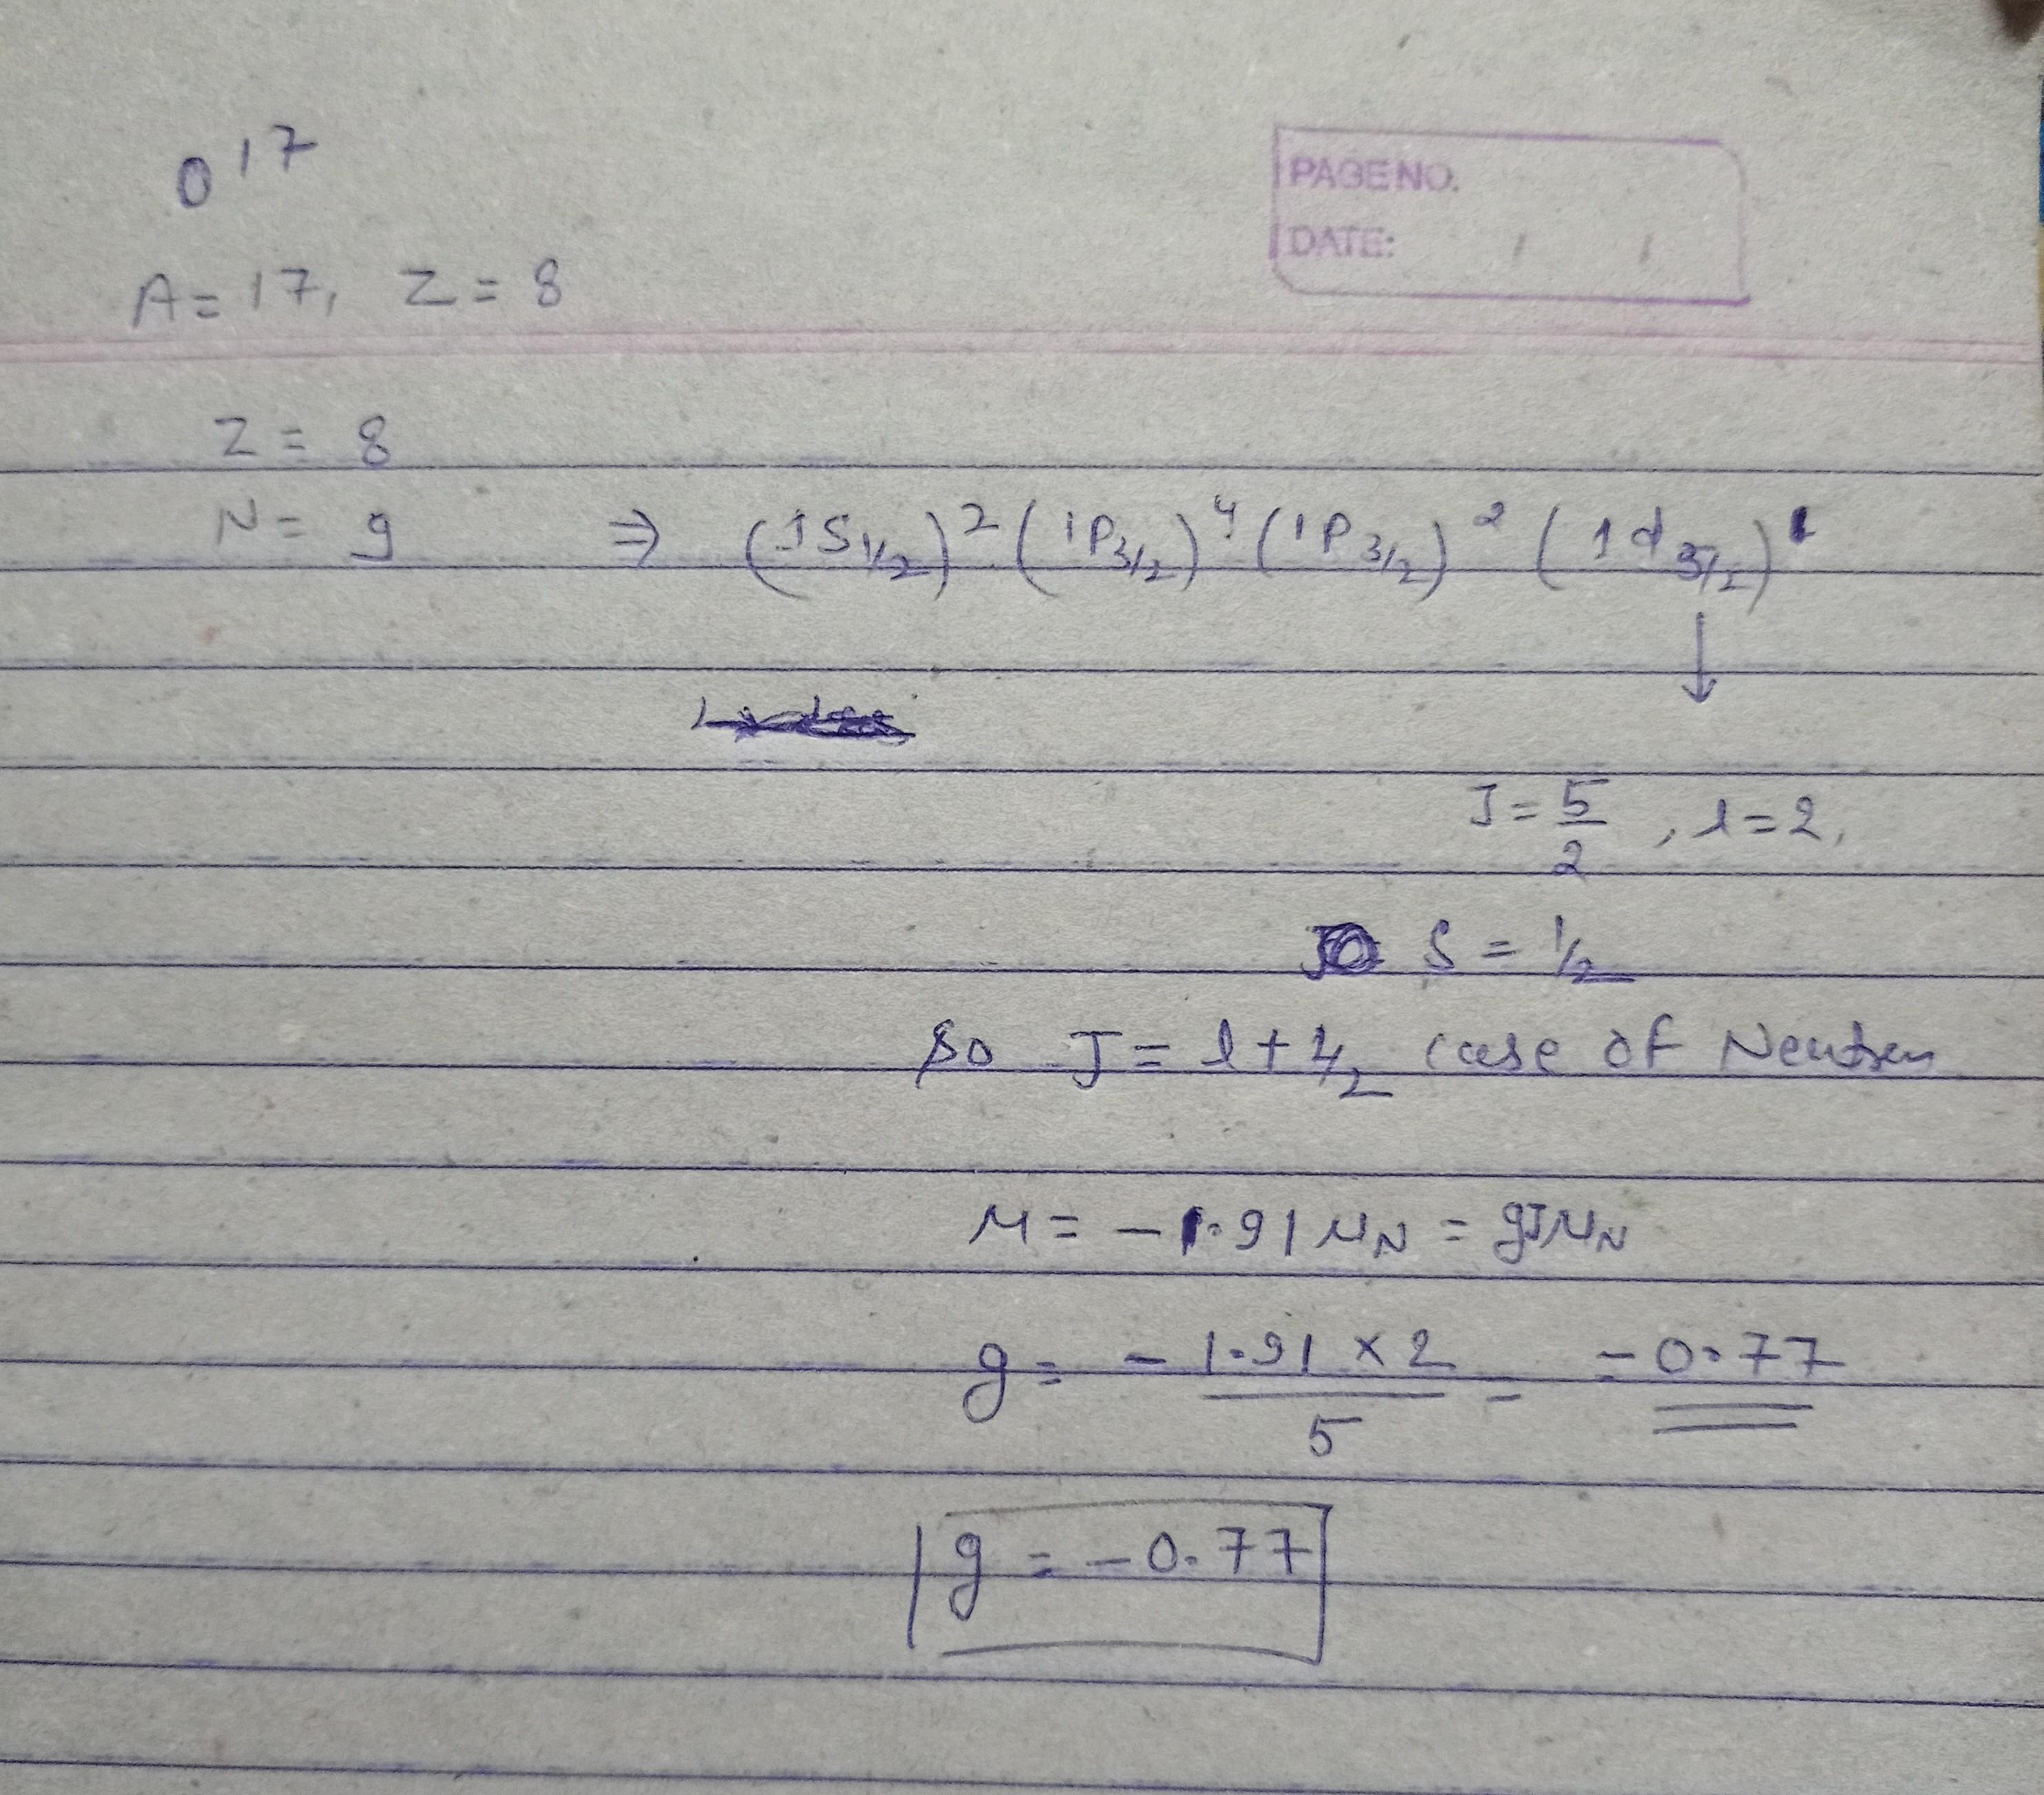 O¹⁷
PAGE NO.
DATE: / /
A = 17, Z = 8
Z = 8
N = 9 ⇒ (1S1/2)² (1P3/2)⁴ (1P3/2)² (1d5/2)¹
J = 5/2, l = 2,
S = 1/2
So J = l + 1/2 case of Neutron
μ = -1.91 μN = gJμN
g = - 1.91 × 2 / 5 = -0.77
g = -0.77